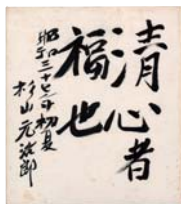 清心者
福也
昭和三十七年初夏
杉山元治郎